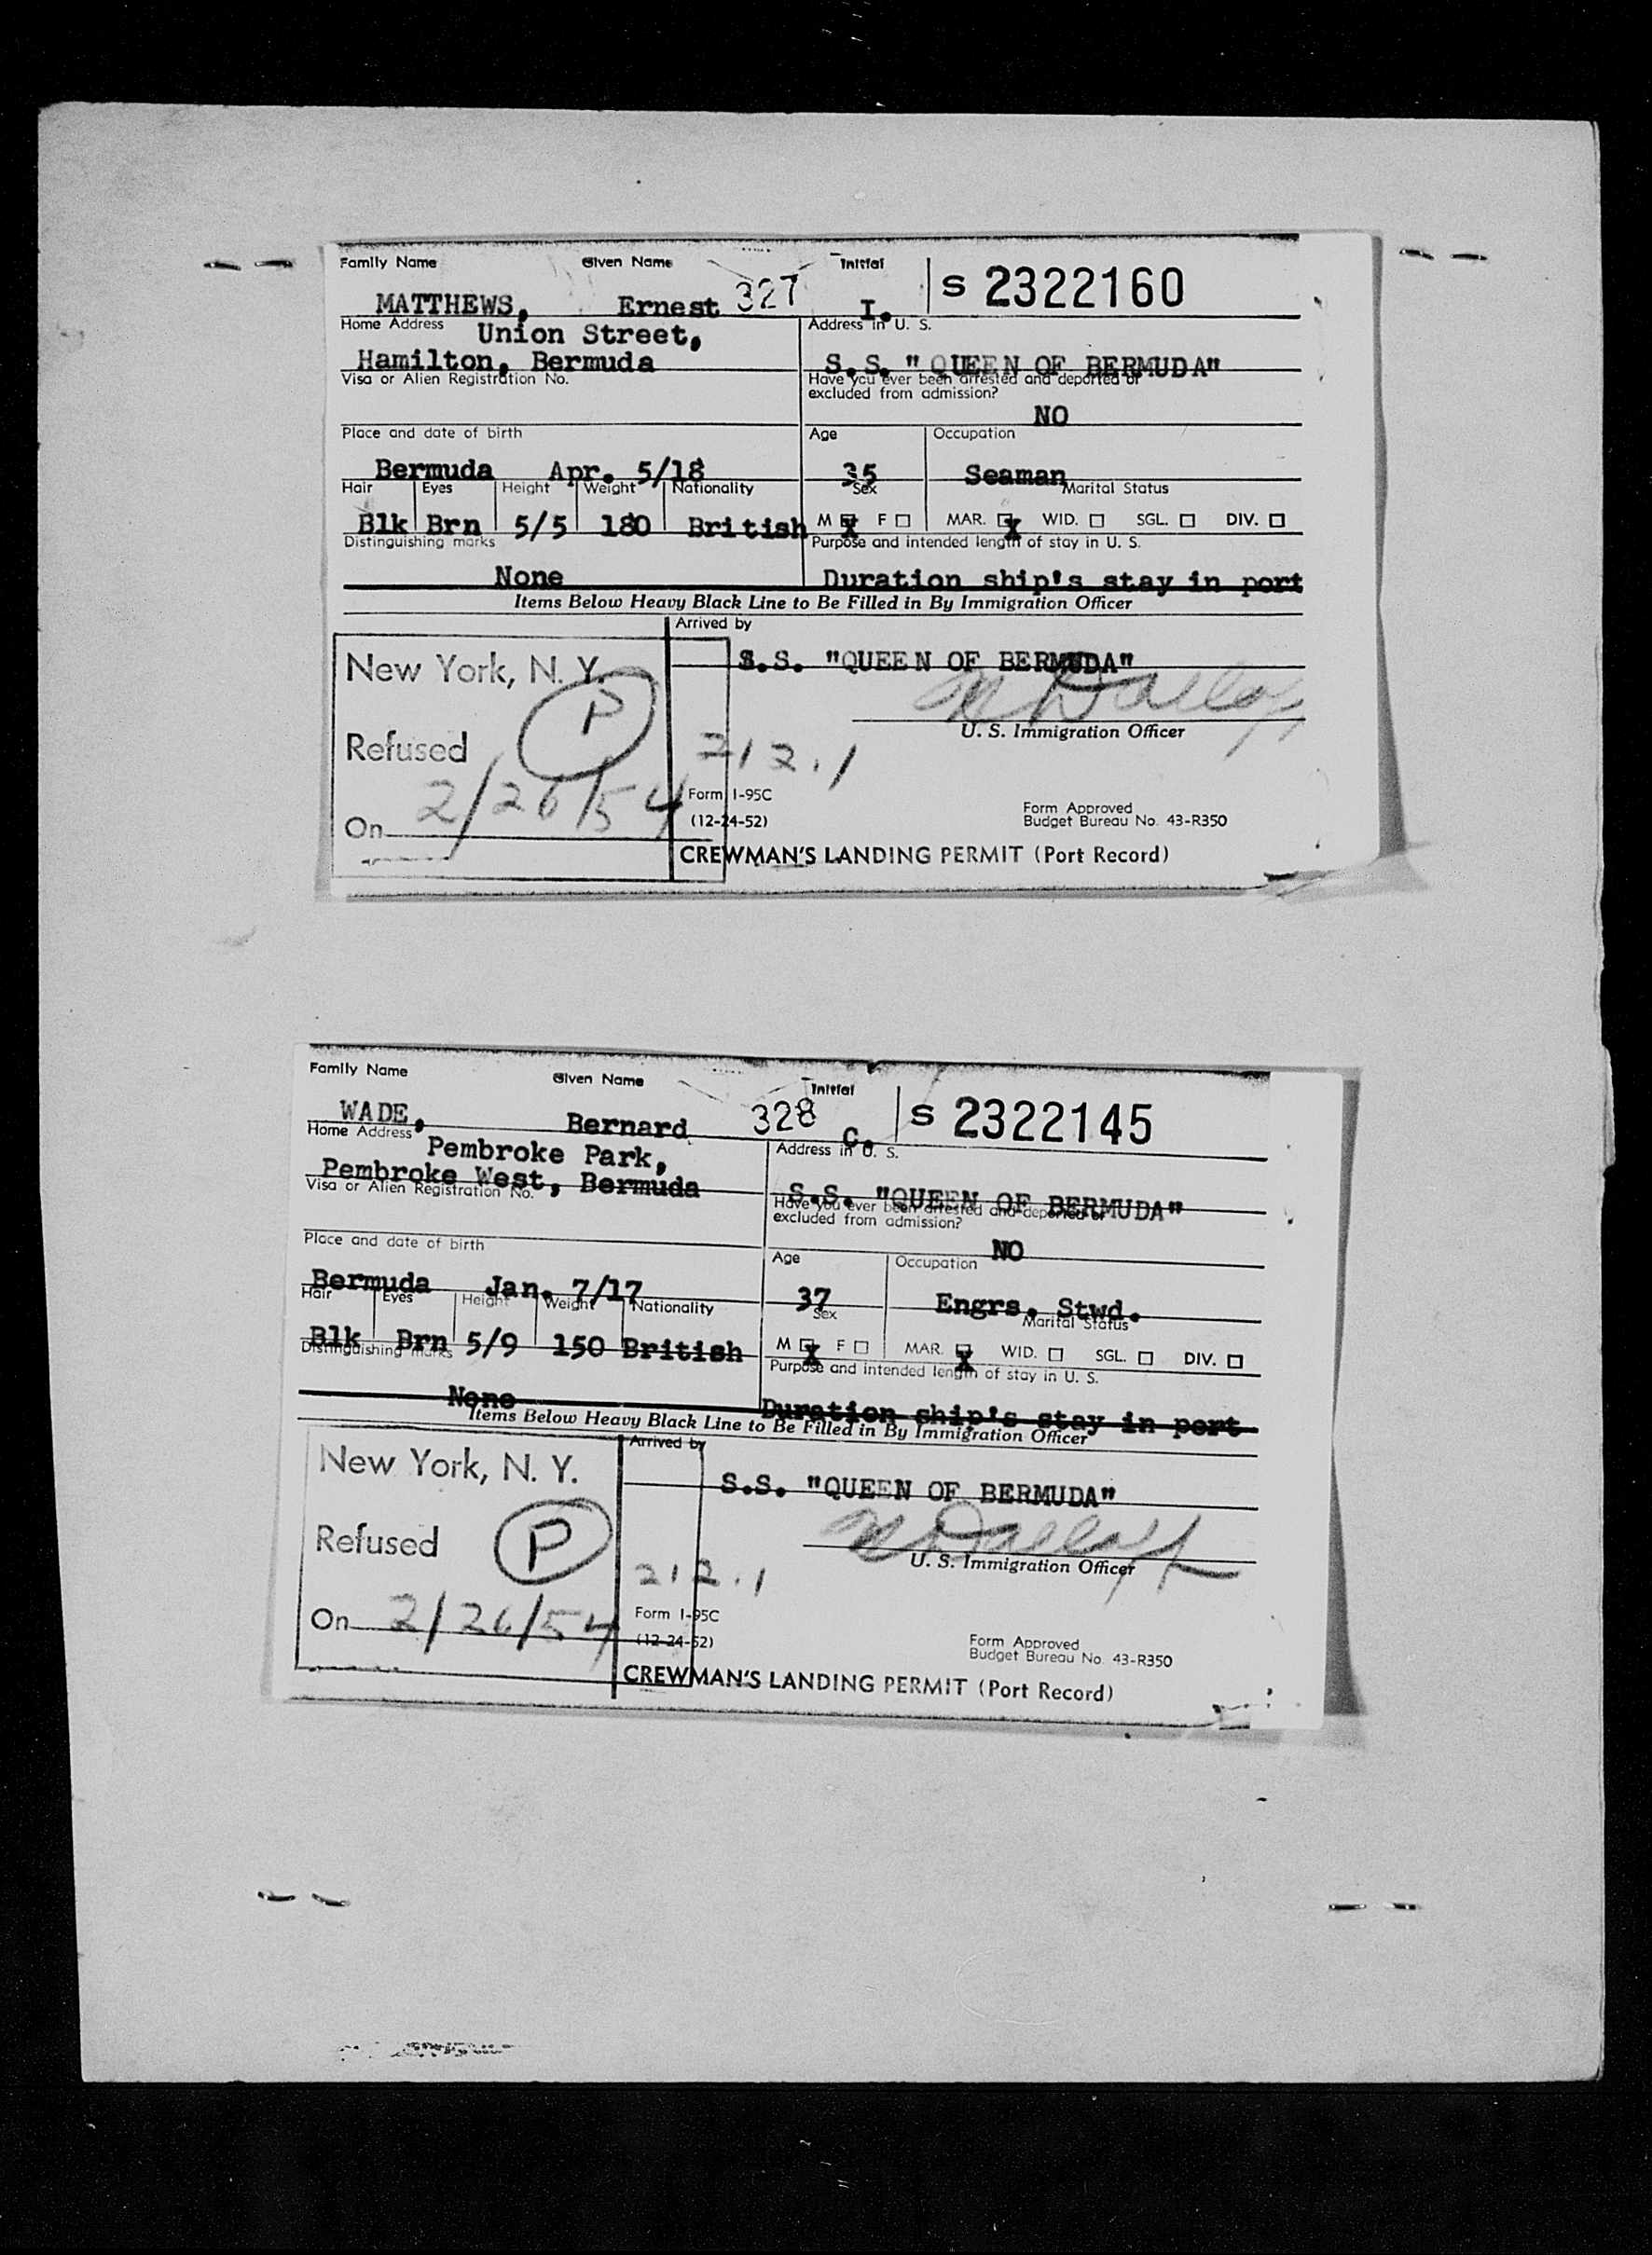 Family Name Given Name Initial
MATTHEWS, Ernest 327 I. S 2322160
Home Address Address in U. S.
Union Street,
Hamilton, Bermuda S.S. "QUEEN OF BERMUDA"
Visa or Alien Registration No. Have you ever been arrested and deported or
excluded from admission?
NO
Place and date of birth Age Occupation
Bermuda Apr. 5/18 35 Seaman
Hair Eyes Height Weight Nationality Sex Marital Status
Blk Brn 5/5 180 British M X F MAR. X WID. SGL. DIV.
Distinguishing marks Purpose and intended length of stay in U. S.
None Duration ship's stay in port
Items Below Heavy Black Line to Be Filled in By Immigration Officer
Arrived by
New York, N. Y. S.S. "QUEEN OF BERMUDA"
P
U. S. Immigration Officer
Refused 212.1
On 2/26/54
Form I-95C
(12-24-52)
Form Approved
Budget Bureau No. 43-R350
CREWMAN'S LANDING PERMIT (Port Record)
Family Name Given Name Initial
WADE, Bernard 328 C. S 2322145
Home Address Address in U. S.
Pembroke Park,
Pembroke West, Bermuda S.S. "QUEEN OF BERMUDA"
Visa or Alien Registration No. Have you ever been arrested and deported or
excluded from admission?
NO
Place and date of birth Age Occupation
Bermuda Jan. 7/17 37 Engrs. Stwd.
Hair Eyes Height Weight Nationality Sex Marital Status
Blk Brn 5/9 150 British M X F MAR. X WID. SGL. DIV.
Distinguishing marks Purpose and intended length of stay in U. S.
None Duration ship's stay in port
Items Below Heavy Black Line to Be Filled in By Immigration Officer
Arrived by
New York, N. Y. S.S. "QUEEN OF BERMUDA"
P
U. S. Immigration Officer
Refused 212.1
On 2/26/54
Form I-95C
(12-24-52)
Form Approved
Budget Bureau No. 43-R350
CREWMAN'S LANDING PERMIT (Port Record)